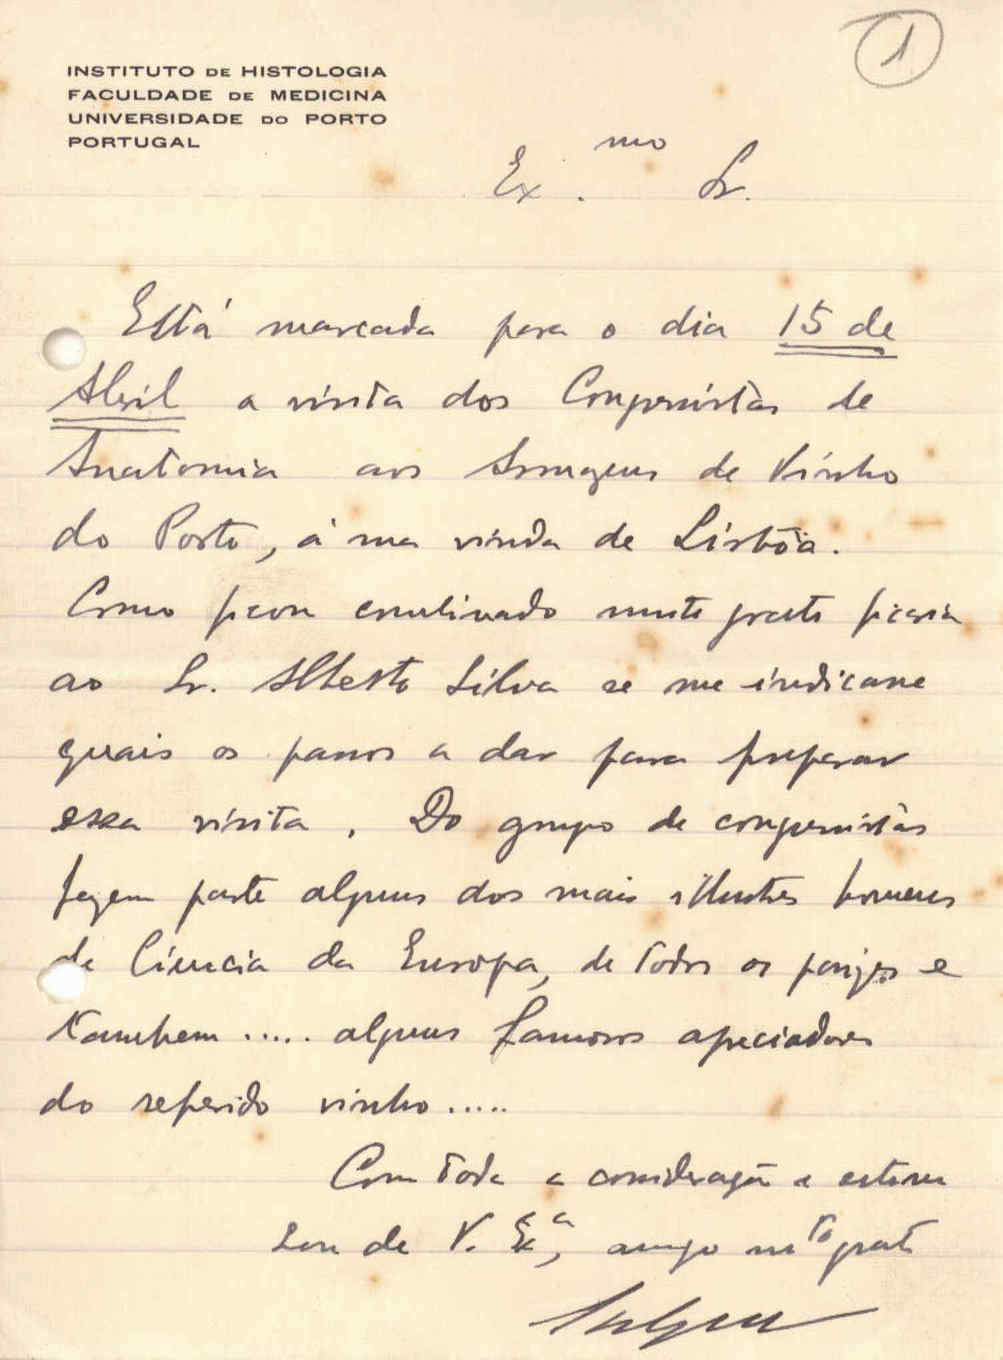 1
INSTITUTO DE HISTOLOGIA
FACULDADE DE MEDICINA
UNIVERSIDADE DO PORTO
PORTUGAL
Ex.mo Sr.
Está marcada para o dia 15 de
Abril a visita dos Congressistas de
Anatomia aos Armazens de Vinho
do Porto, á sua vinda de Lisbôa.
Como ficou combinado muito grato ficaria
ao Sr. Alberto Silva se me indicasse
quais os passos a dar para preparar
essa visita. Do grupo de congressistas
fazem parte alguns dos mais illustres homens
de Ciencia da Europa, de todos os paizes e
tambem ..... alguns famosos apreciadores
do referido vinho .....
Com toda a consideração e estima
Sou de V. Exª, amigo mto grato